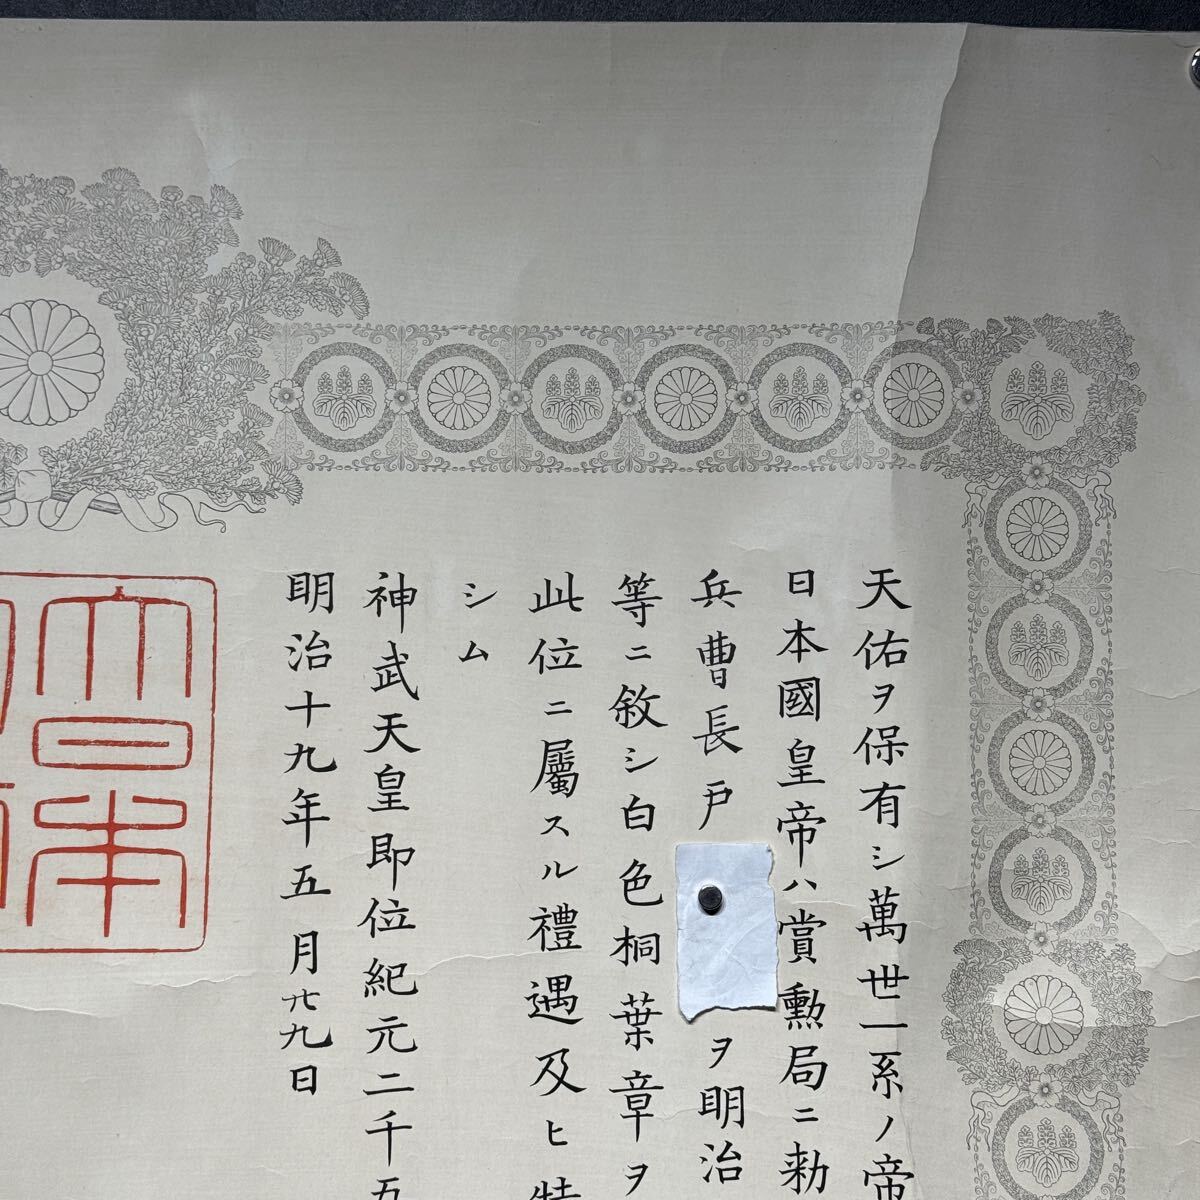 天佑ヲ保有シ萬世一系ノ帝
日本國皇帝ハ賞勲局ニ勅
兵曹長戸
ヲ明治
等ニ敘シ白色桐葉章ヲ
此位ニ屬スル禮遇及ヒ特
シム
神武天皇即位紀元二千五
明治十九年五月廿九日
大日本